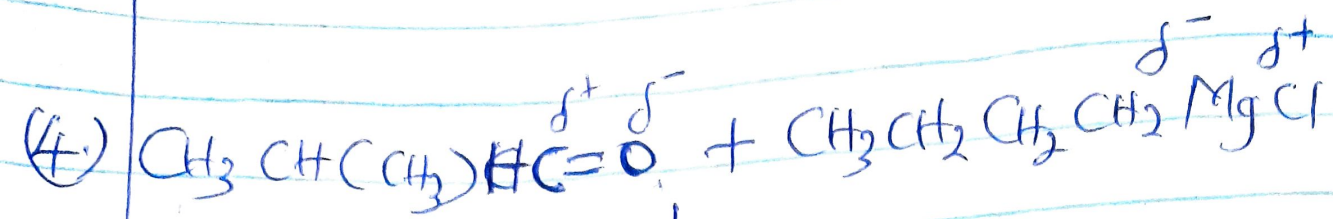 (4.) CH₃CH(CH₃)HC^δ+=O^δ- + CH₃CH₂CH₂CH₂^δ- Mg^δ+Cl